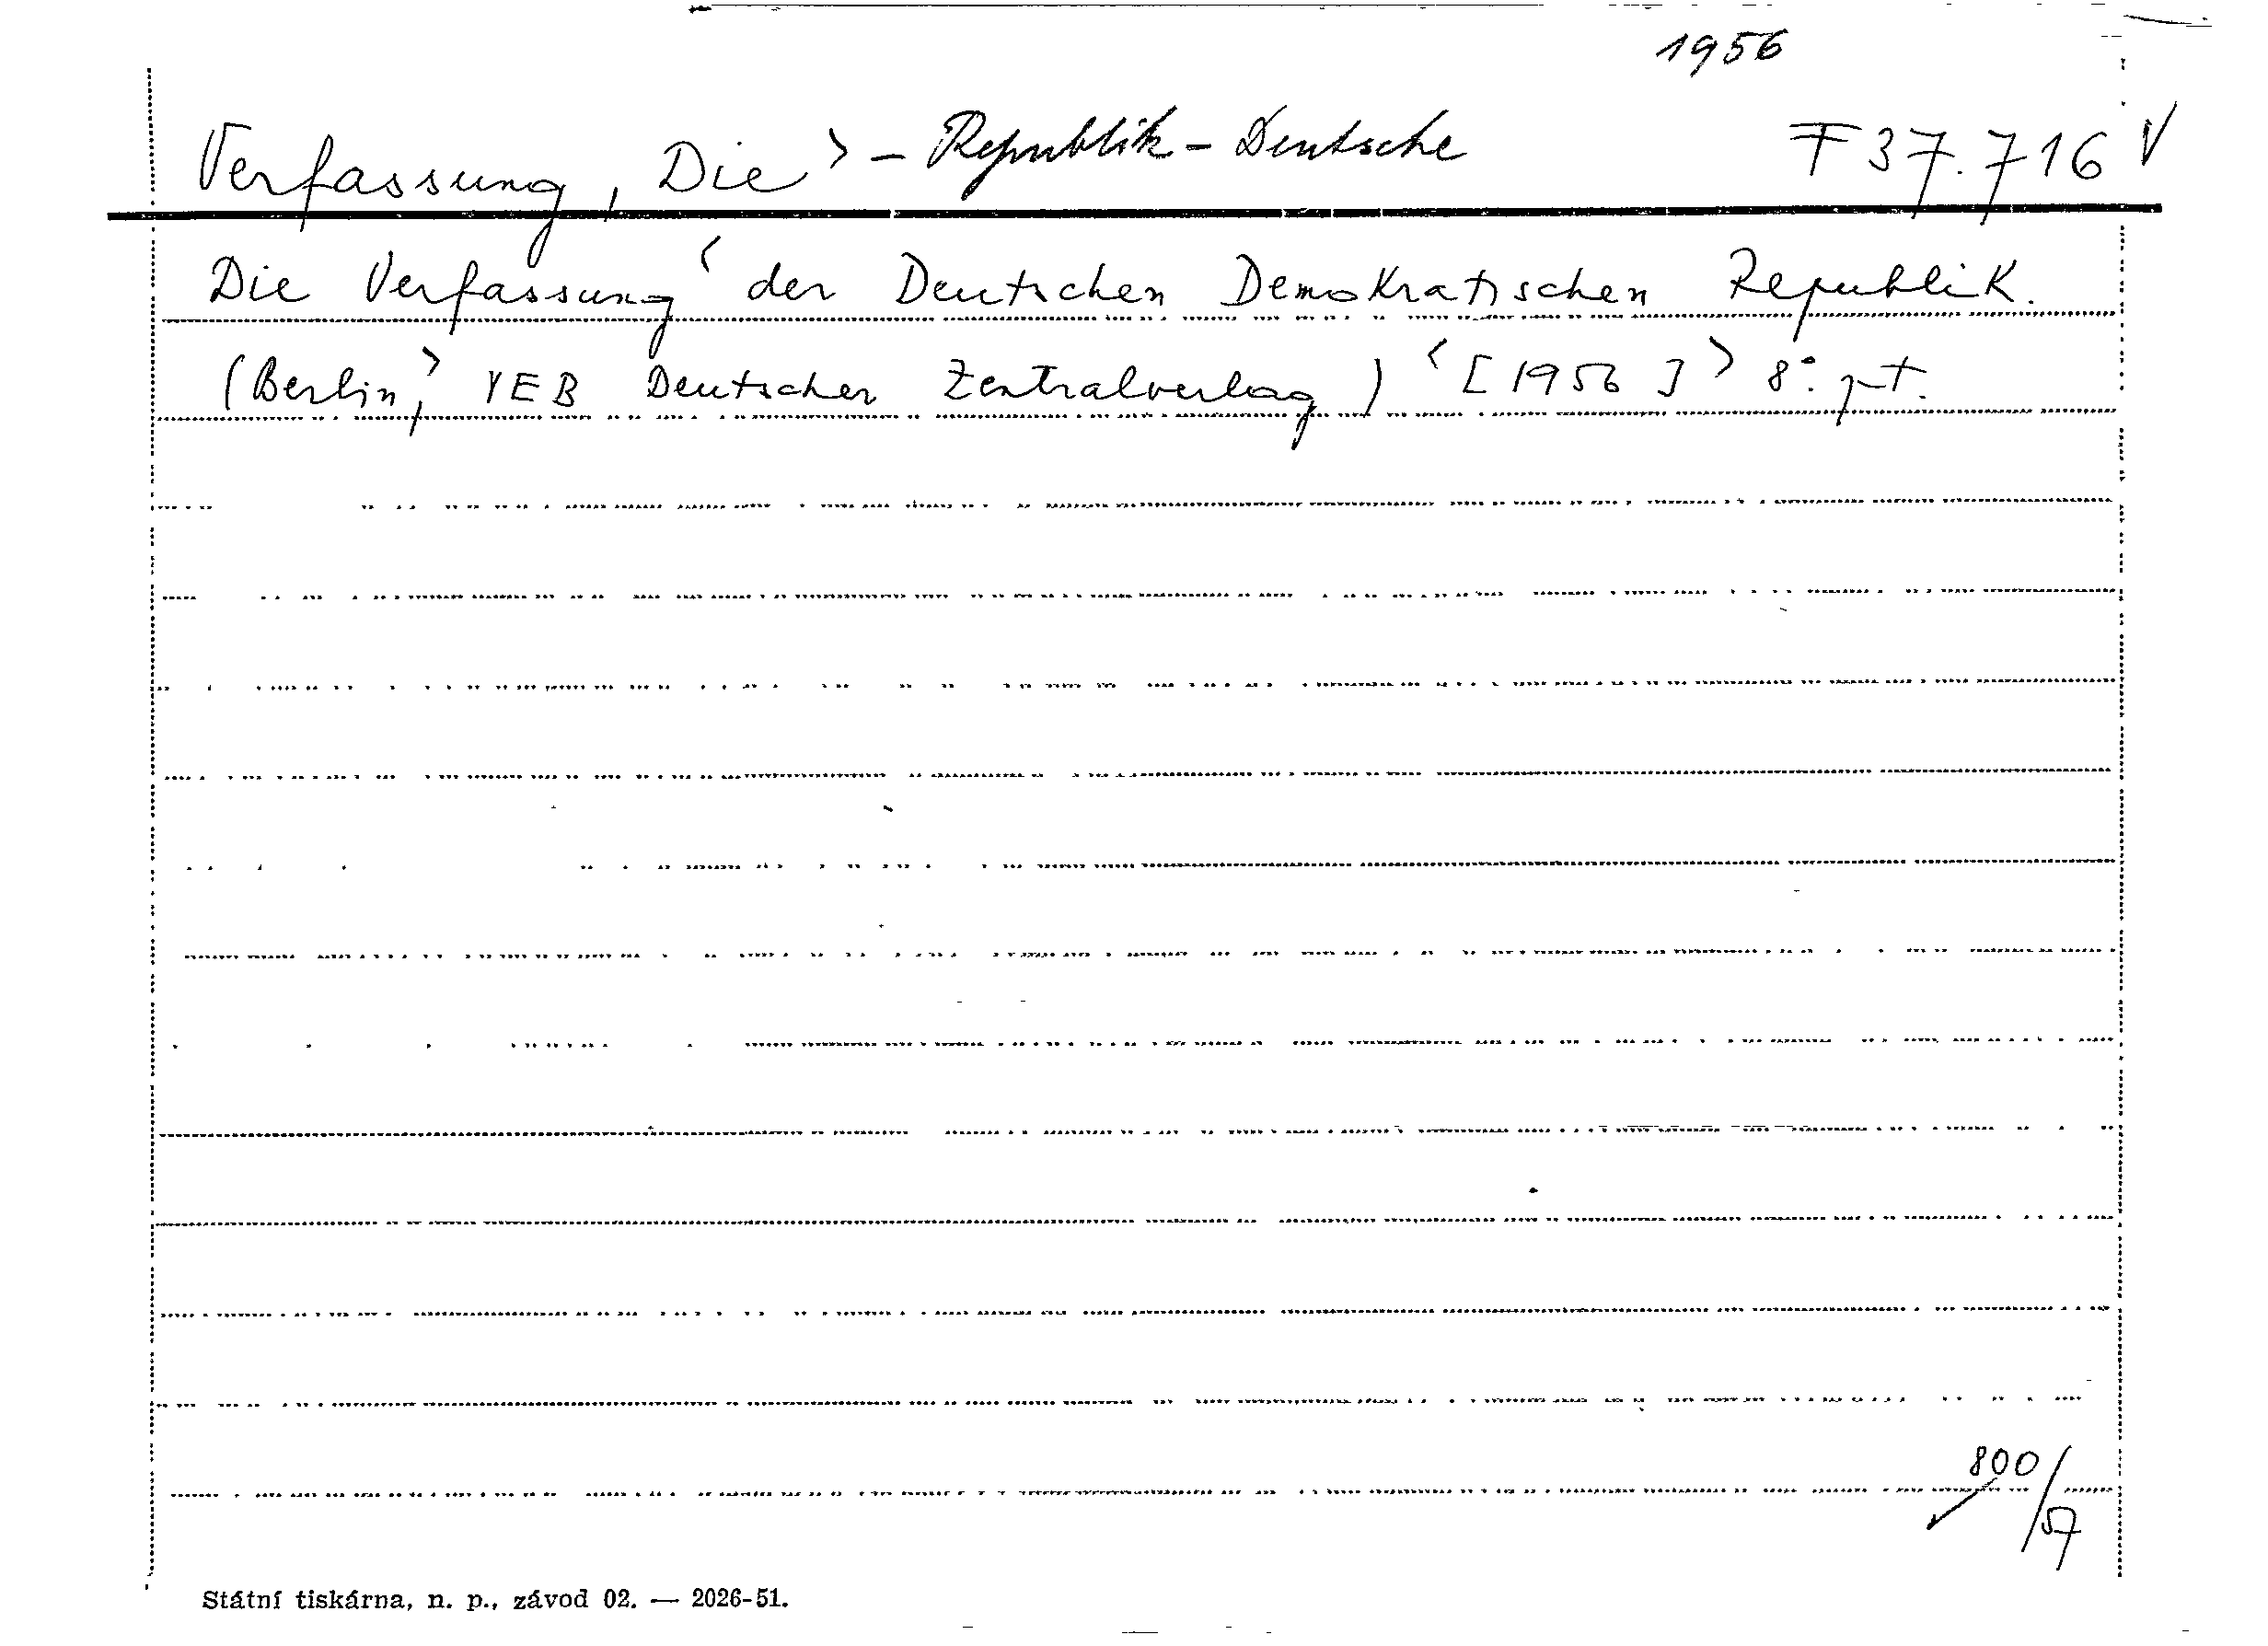 1956
Verfassung, Die > - Republik - Deutsche F 37.716 V
Die Verfassung < der Deutschen Demokratischen Republik.
(Berlin, > VEB Deutscher Zentralverlag) < [1956] > 8°.
800/57
Státní tiskárna, n. p., závod 02. — 2026-51.